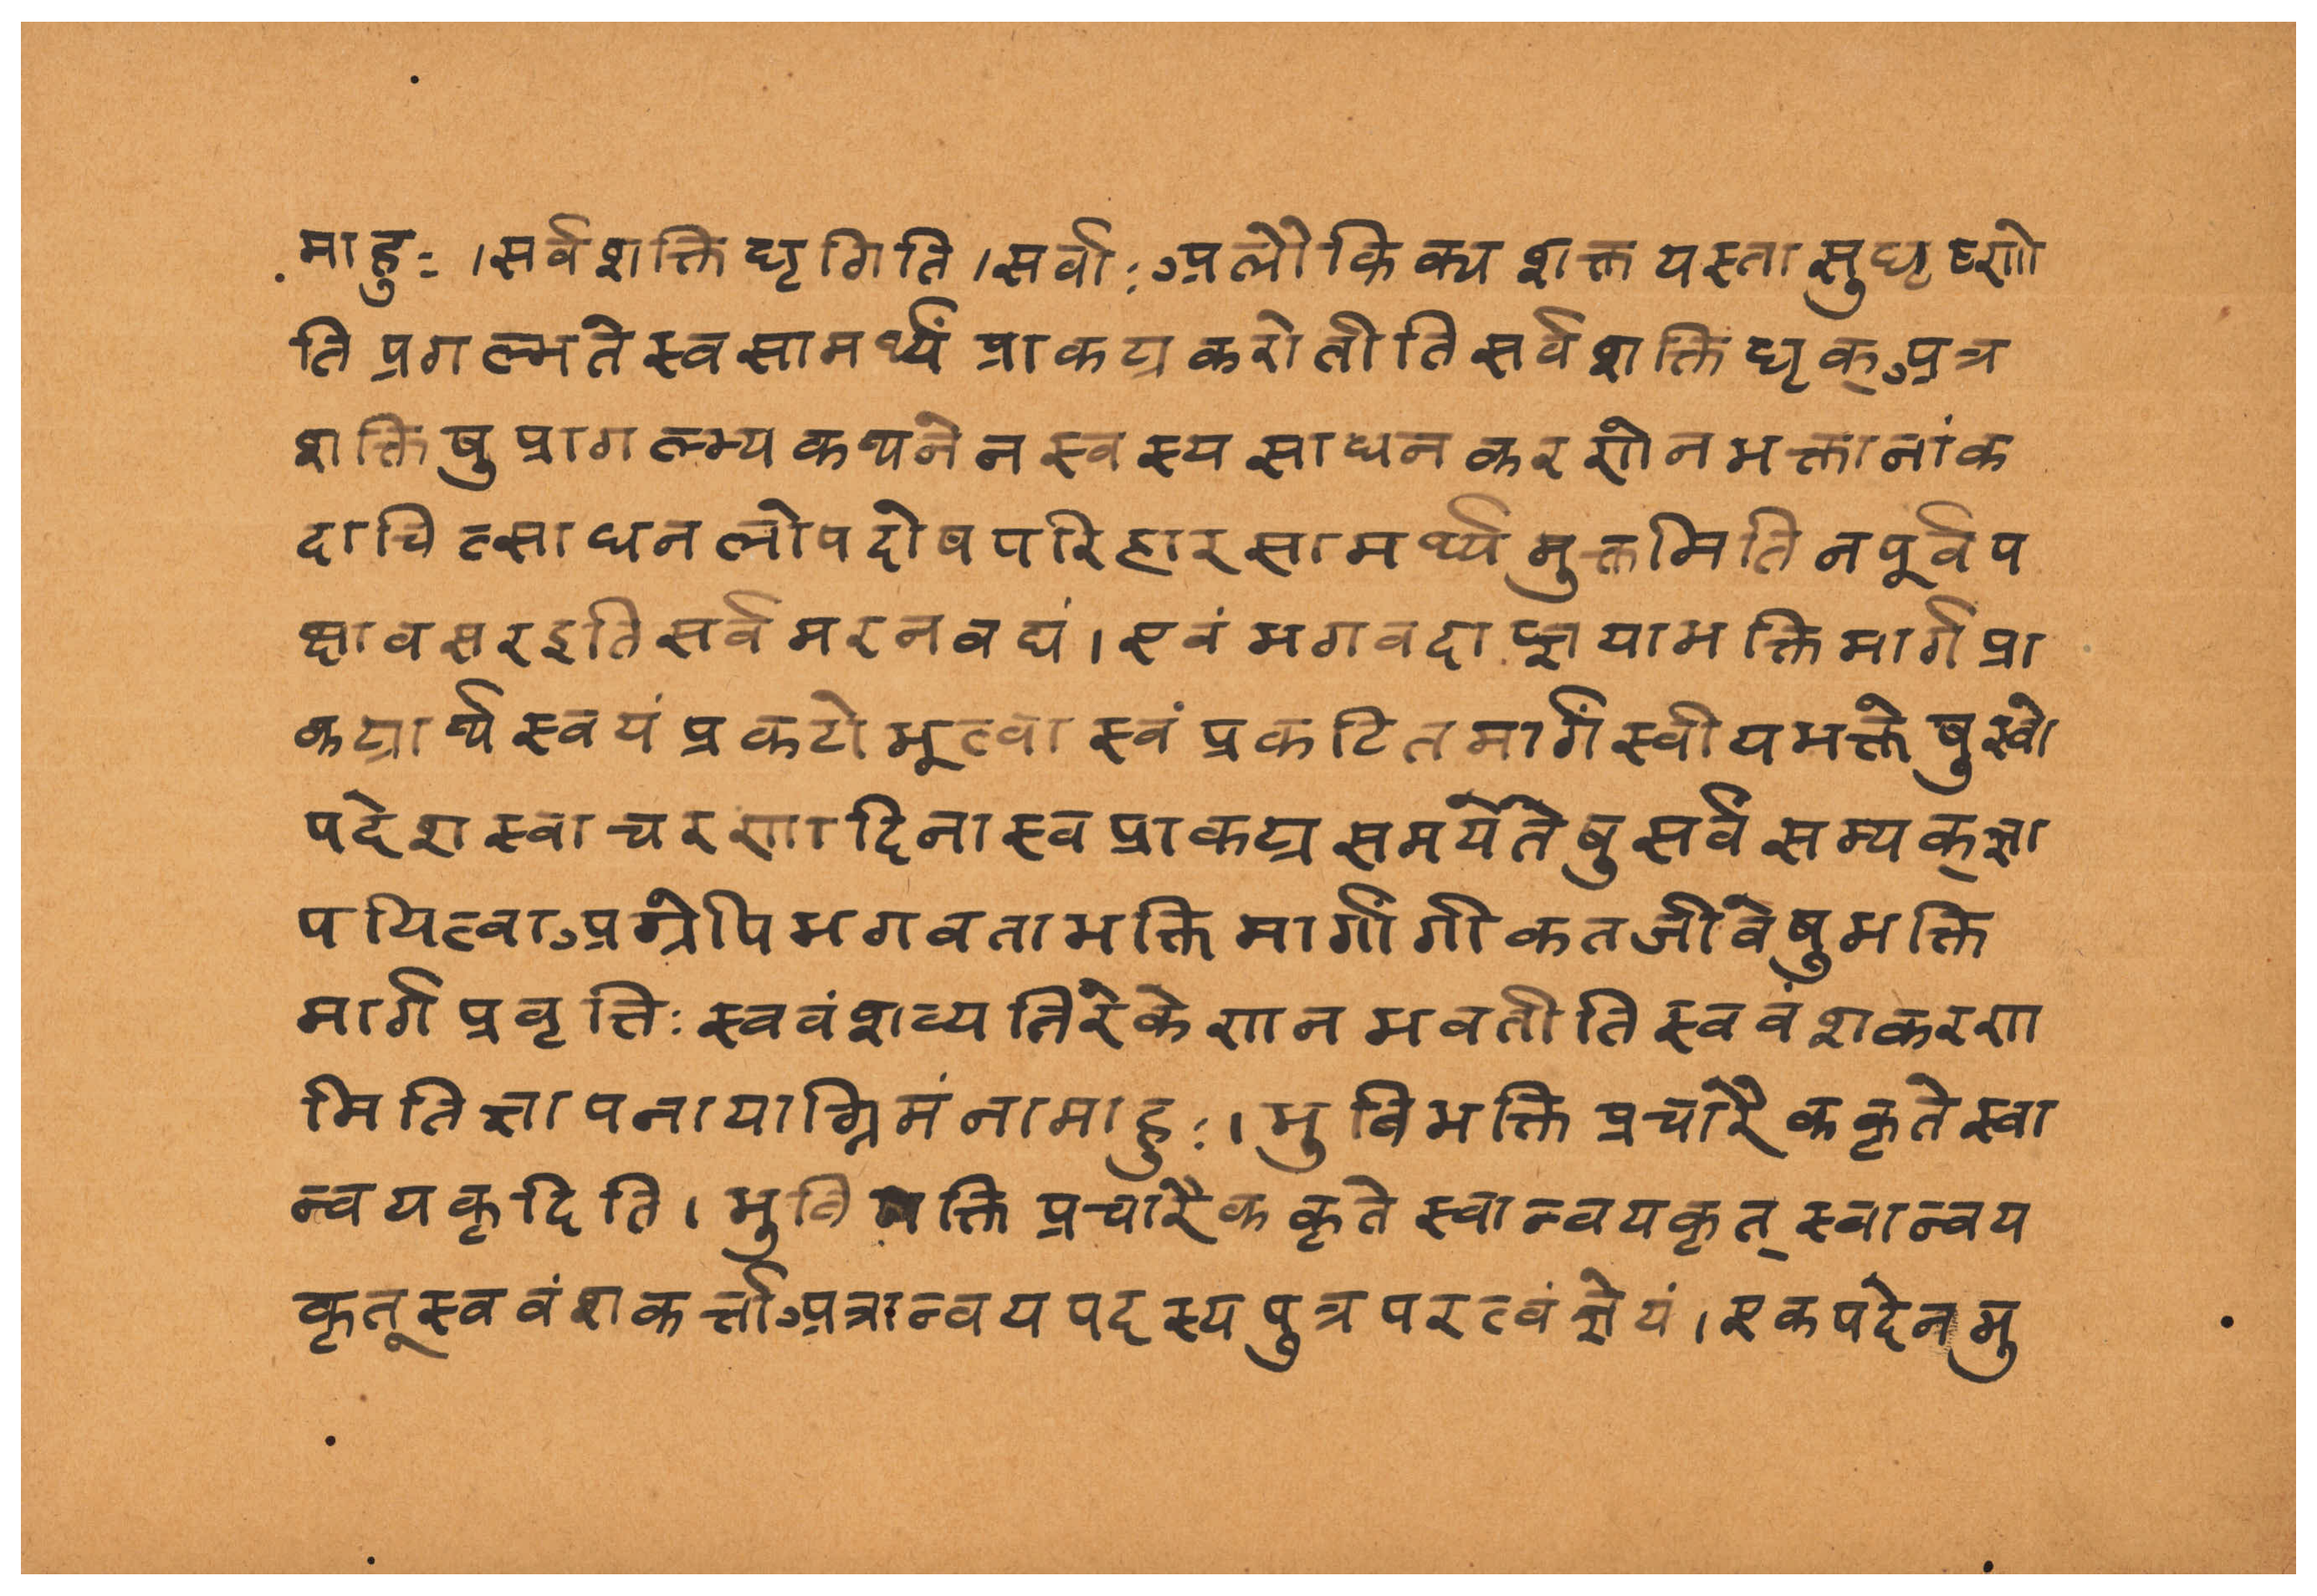 माहुः ।सर्वशक्तिधृगिति ।सर्वाः अलौकिक्य शक्त यस्तासुधृष्णो
ति प्रगल्भते स्व सामर्थ्यं प्राकट्य करोतीति सर्वशक्ति धृक् अत्र
शक्तिषु प्रागल्भ्य कथनेन स्वस्य साधन करणेन भक्तानां क
दाचित्साधन लोप दोष परिहार सामर्थ्य मुक्तमिति न पूर्वप
क्षावसर इति सर्व मर नवद्यं । एवं भगवदाज्ञया भक्ति मार्ग प्रा
कट्यार्थ स्वयं प्रकटो भूत्वा स्वं प्रकटित मार्गं स्वीय भक्तेषु स्वो
पदेश स्वाचरणादिना स्व प्राकट्य समये तेषु सर्वं सम्यक् ज्ञा
पयित्वा अग्रेपि भगवता भक्ति मार्गांगीकत जीवेषु भक्ति
मार्ग प्रवृत्तिः स्ववंशव्यतिरेकेण न भवतीति स्ववंशकरण
मिति ज्ञापनायाग्रिमं नामाहुः । भुवि भक्ति प्रचारैककृते स्वा
न्वयकृदिति । भुवि भक्ति प्रचारैक कृते स्वान्वयकृत् स्वान्वय
कृत् स्ववंशकर्त्ता अत्रान्वय पदस्य पुत्र परत्वं ज्ञेयं । एक पदेन भु